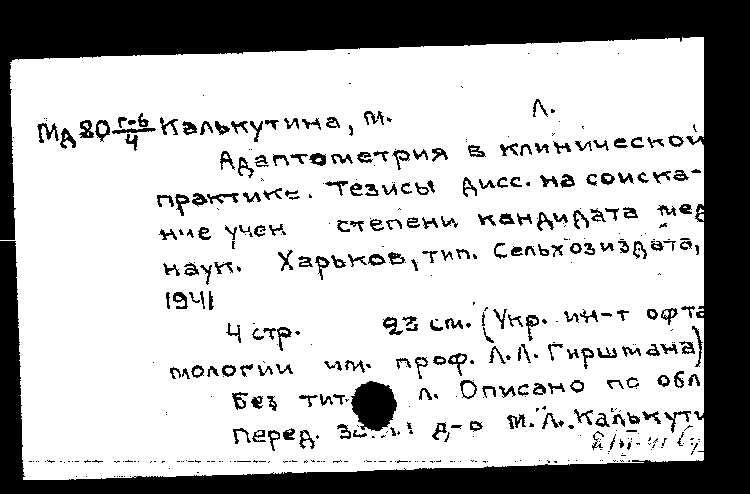 МД80 Г-6/4 Калькутина, М. Л.
Адаптометрия в клинической
практике. Тезисы дисс. на соиска-
ние учен степени кандидата мед
наук. Харьков, тип. Сельхозиздата,
1941
4 стр. 23 см. (Укр. ин-т офта
мологии им. проф. Л.Л. Гиршмана)
Без тит л. Описано по обл
Перед. д-р М.Л. Калькути